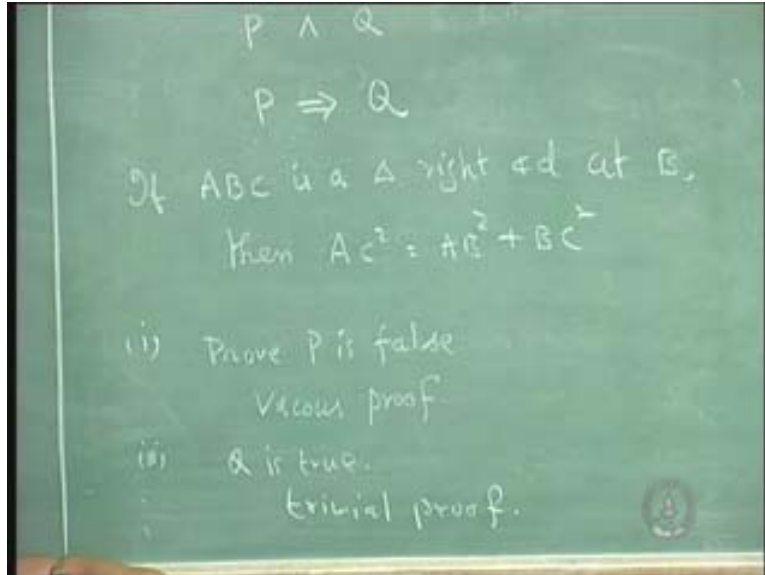 P ∧ Q
P ⇒ Q
If ABC is a △ right ∢d at B,
then AC² = AB² + BC²
(i) Prove P is false
Vacous proof.
(ii) Q is true.
trivial proof.